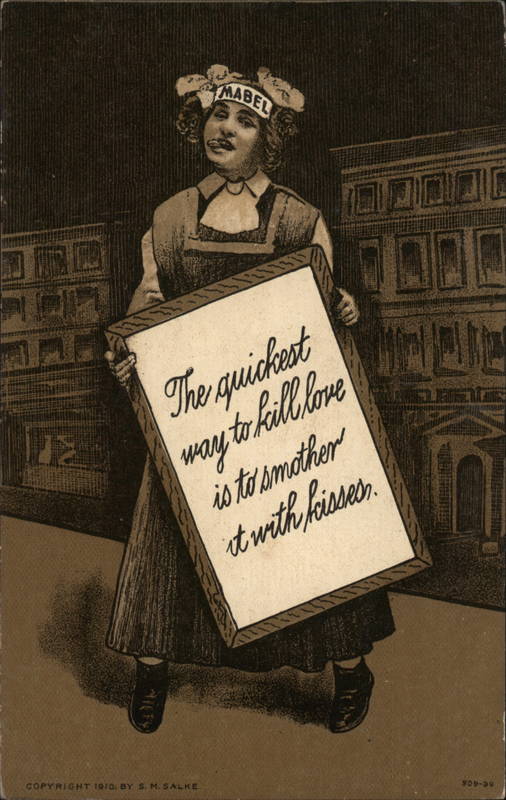 MABEL
The quickest
way to kill love
is to smother
it with kisses.
COPYRIGHT 1910, BY S. M. SALKE
509-39